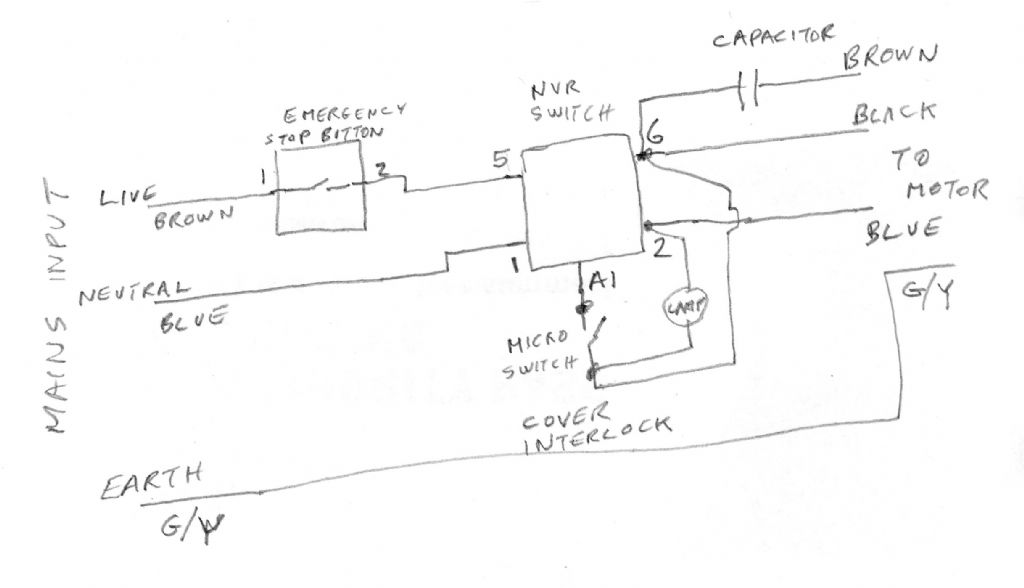 CAPACITOR
BROWN
NVR
SWITCH
EMERGENCY
STOP BITTON
BLACK
6
5
1
2
TO
MOTOR
LIVE
BROWN
BLUE
2
1
A1
G/Y
MAINS INPUT
NEUTRAL
BLUE
LAMP
MICRO
SWITCH
COVER
INTERLOCK
EARTH
G/Y